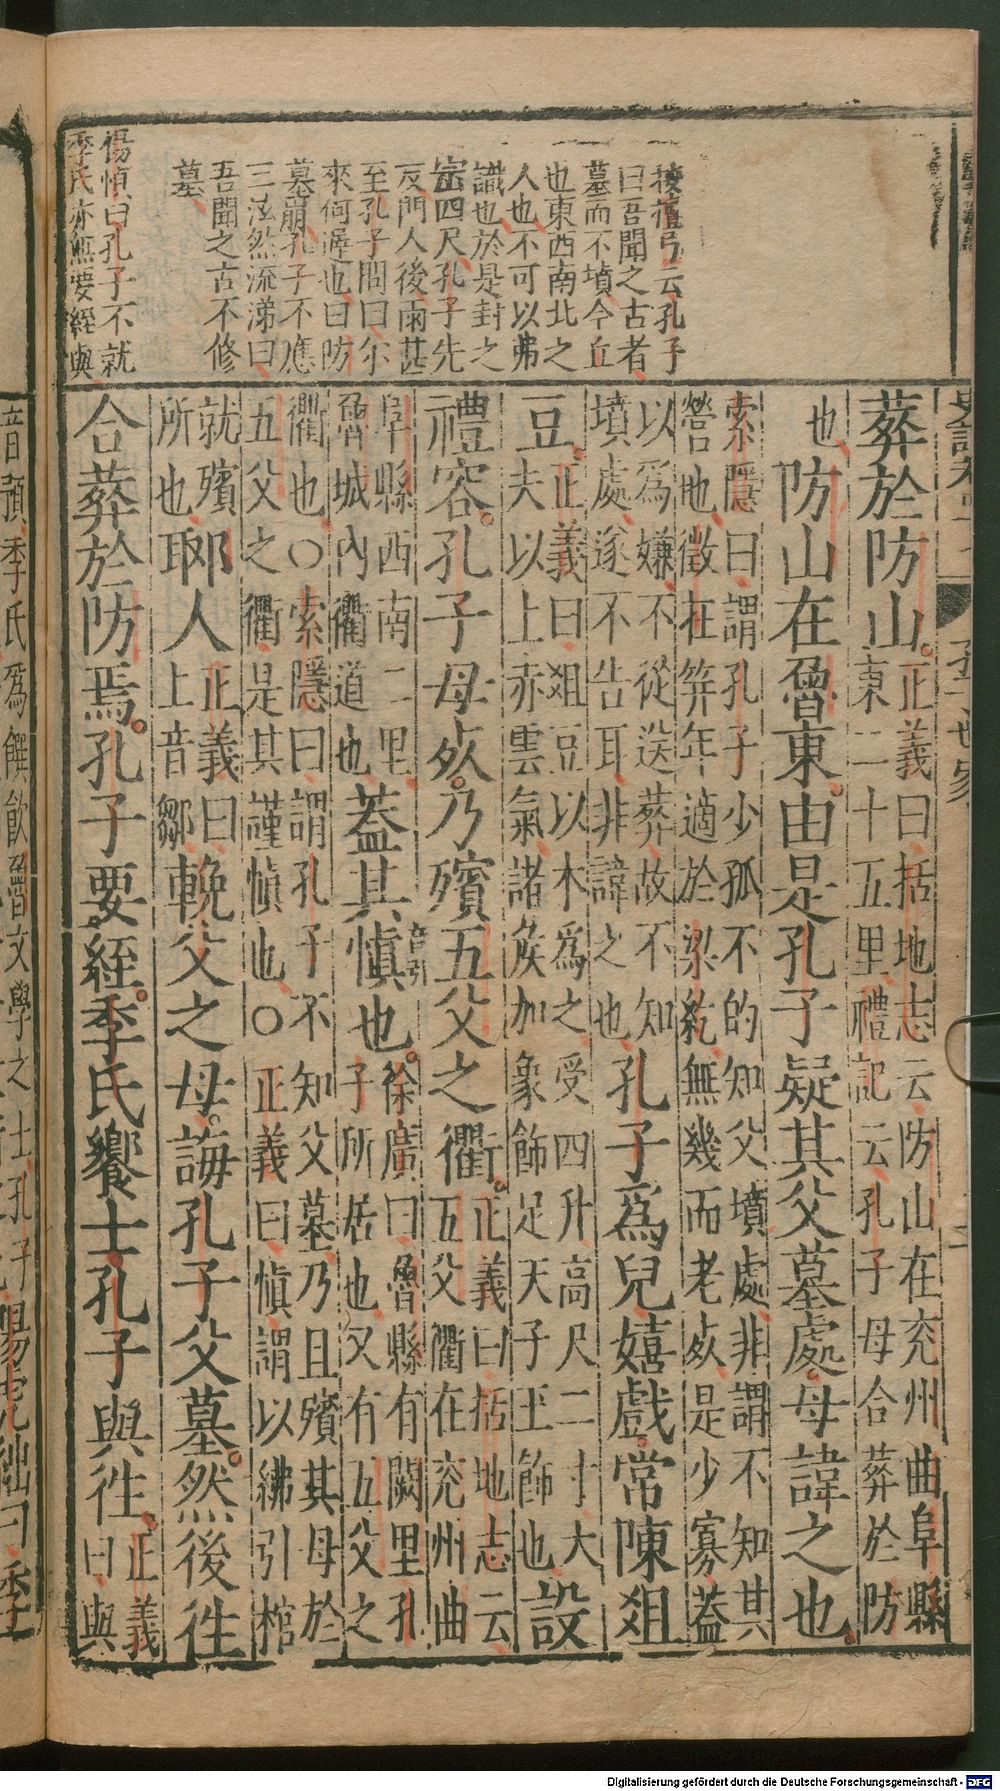 按檀弓云孔子
曰吾聞之古者
墓而不墳今丘
也東西南北之
人也不可以弗
識也於是封之
崇四尺孔子先
反門人後雨甚
至孔子問曰尔
來何遲也曰防
墓崩孔子不應
三泫然流涕曰
吾聞之古不修
墓
楊慎曰孔子不就
季氏亦無要絰與
史記卷四十七
孔子世家
二
葬於防山。正義曰括地志云防山在兖州曲阜縣
東二十五里禮記云孔子母合葬於防
也防山在魯東。由是孔子疑其父墓處。母諱之也。
索隱曰謂孔子少孤不的知父墳處非謂不知其
塋地徵在筓年適於梁紇無幾而老死是少寡蓋
以爲嫌不從送葬故不知
墳處遂不告耳非諱之也孔子爲兒嬉戲。常陳爼
豆正義曰爼豆以木爲之受四升高尺二寸大
夫以上赤雲氣諸侯加象飾足天子玉飾也設
禮容。孔子母死。乃殯五父之衢。正義曰括地志云
五父衢在兖州曲
阜縣西南二里
魯城內衢道也蓋其慎也。徐廣曰魯縣有闕里孔
子所居也又有五父之
衢也〇索隱曰謂孔子不知父墓乃且殯其母於
五父之衢是其謹慎也〇正義曰慎謂以紼引棺
就殯
所也郰人正義曰
上音鄒輓父之母。誨孔子父墓。然後徃
合葬於防焉。孔子要絰。季氏饗士。孔子與徃。正義
曰與
音預季氏爲饌飲魯文學之士孔子
陽虎絀曰季
Digitalisierung gefördert durch die Deutsche Forschungsgemeinschaft - DFG